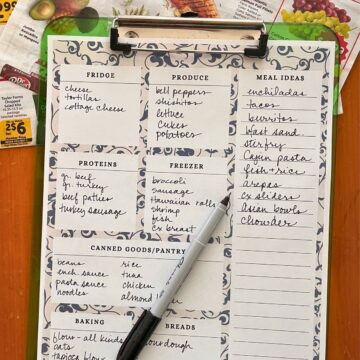 FRIDGE
cheese
tortillas
cottage cheese
PRODUCE
bell peppers
shishitos
lettuce
cukes
potatoes
MEAL IDEAS
enchiladas
tacos
burritos
bfast sand
stir fry
Cajun pasta
fish + rice
arepas
cx sliders
asian bowls
chowder
PROTEINS
gr. beef
gr. turkey
beef patties
turkey sausage
FREEZER
broccoli
sausage
Hawaiian rolls
shrimp
fish
cx breast
CANNED GOODS/PANTRY
beans
ench sauce
pasta sauce
noodles
rice
tuna
chicken
almond
BAKING
flour - all kinds
oats
tapioca flour
BREADS
dough
Taylor Farms
Chopped
Salad Kits
2 $6